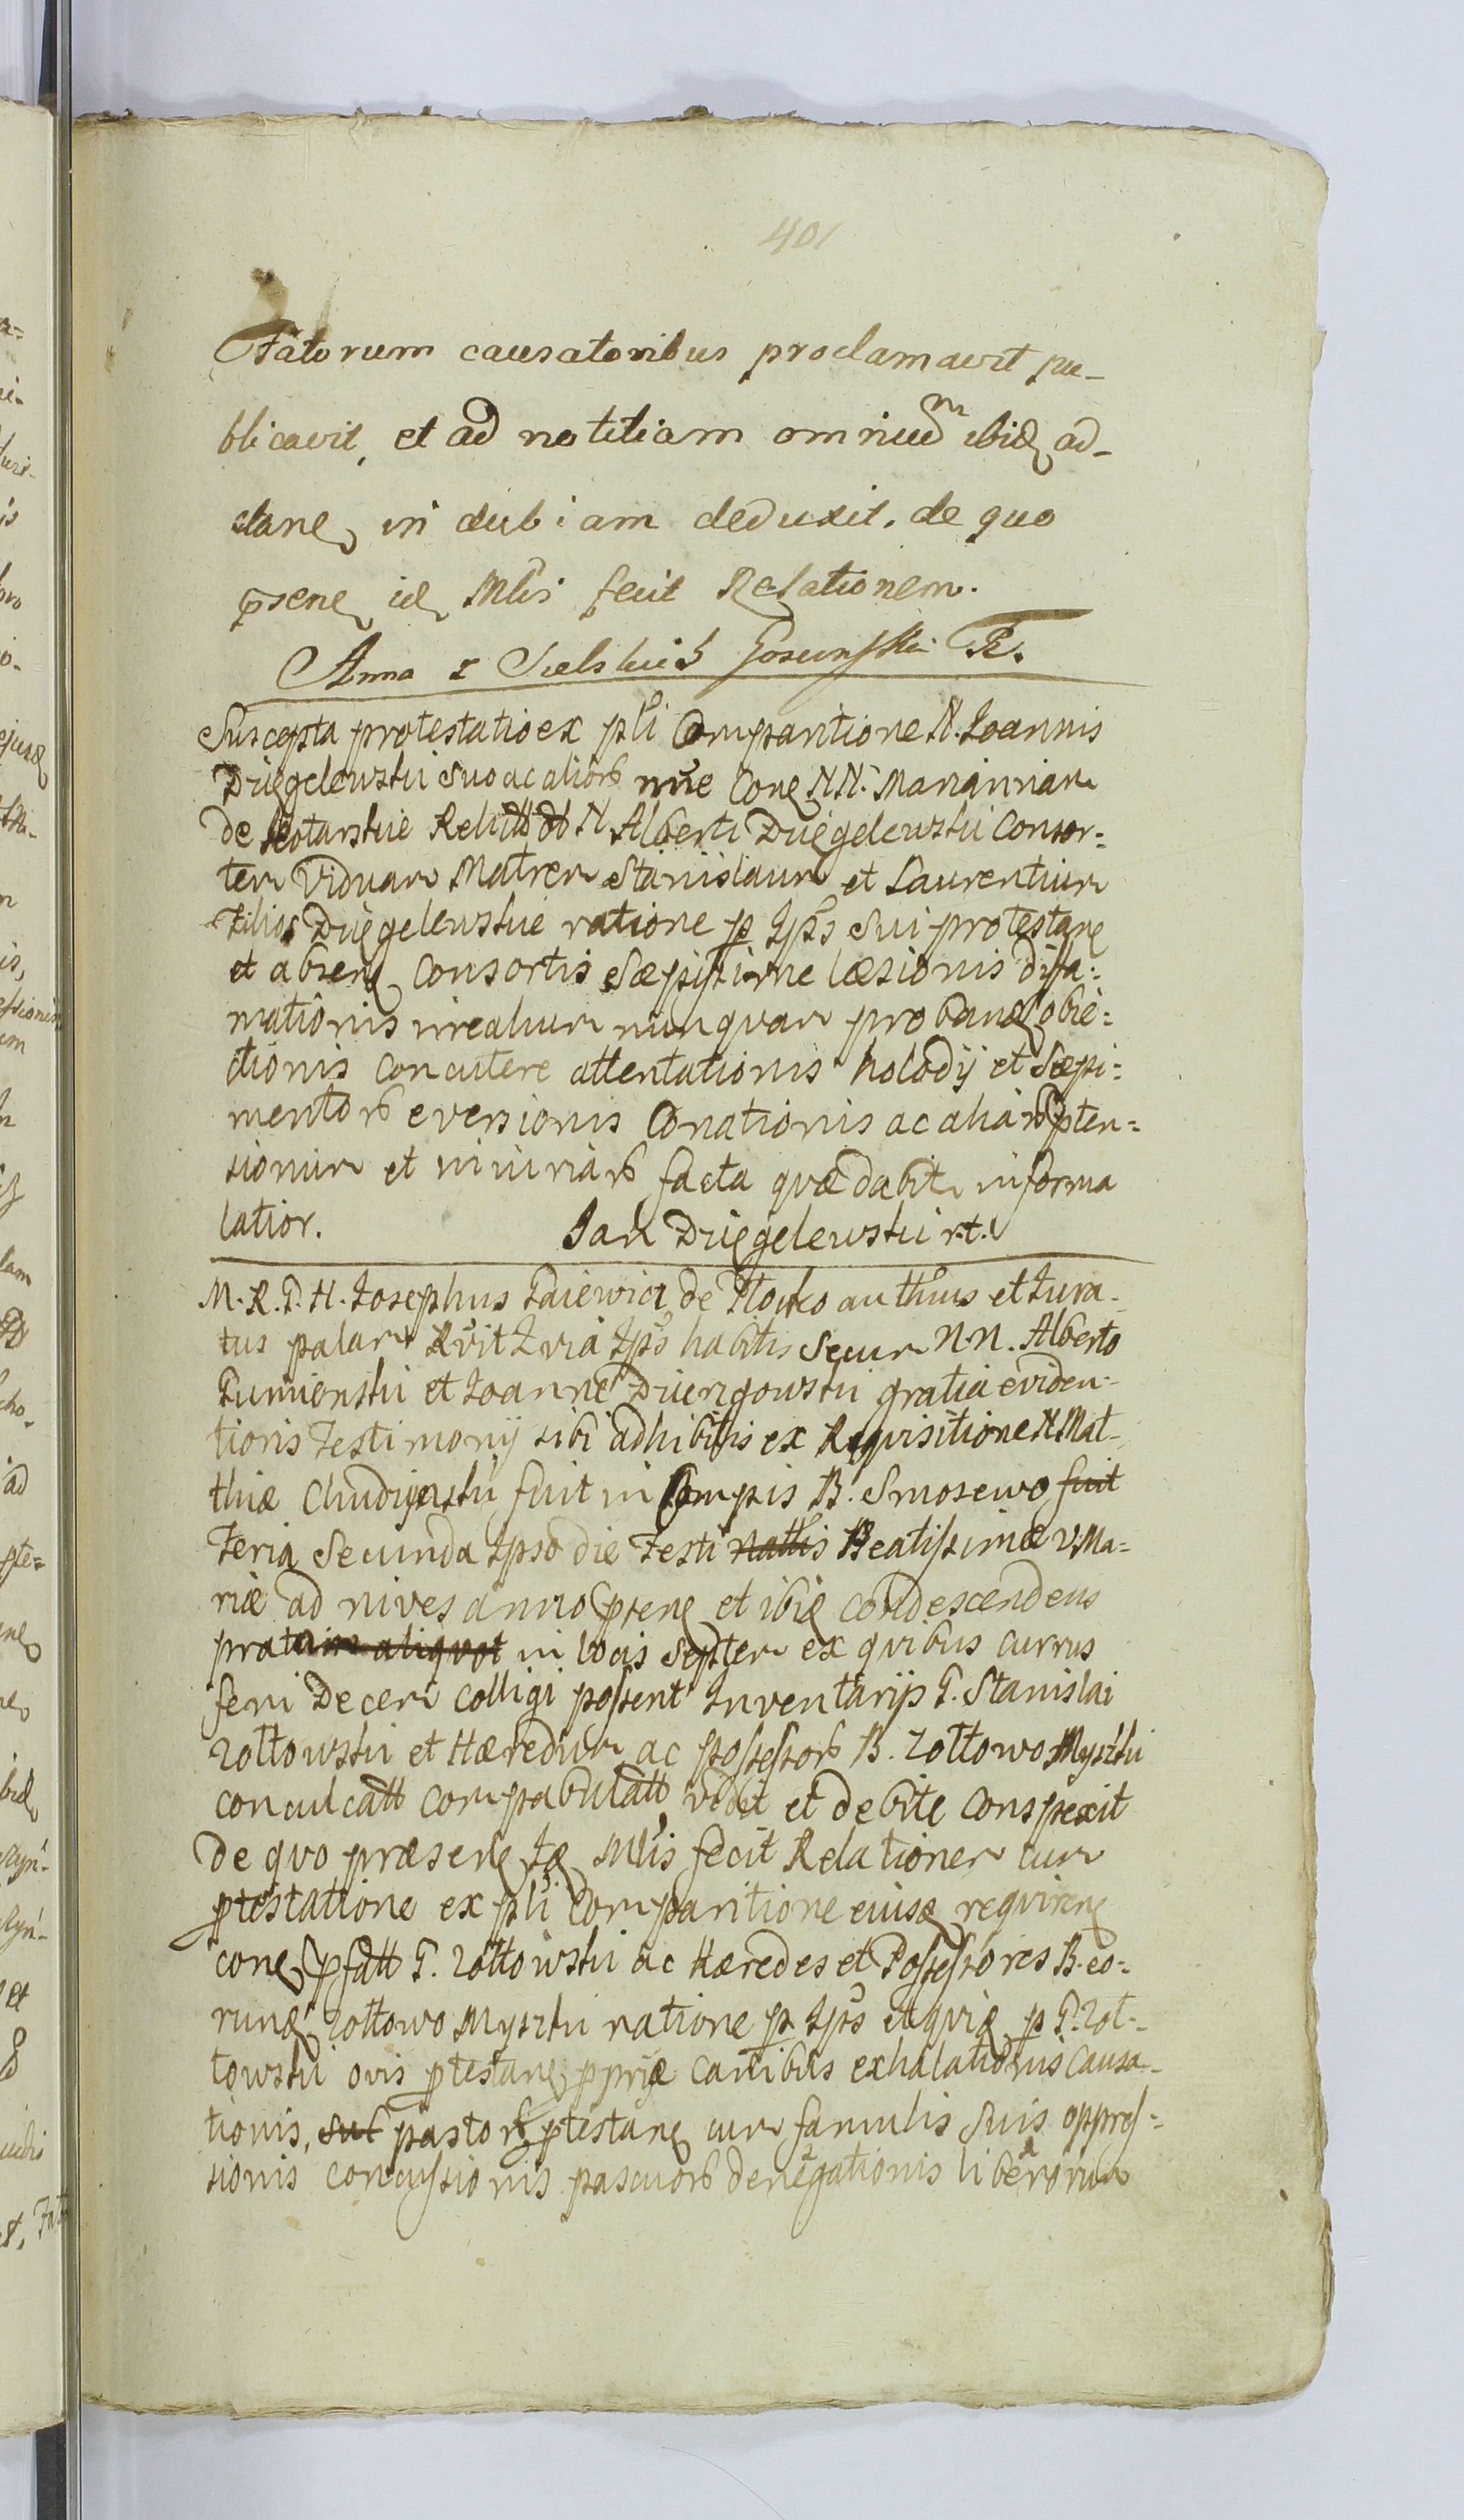 401
Fatorum causatoribus proclamavit pu-
blicavit, et ad notitiam omnium ibiq ad-
stane, in dubiam deduxit. de quo
psene id Mlis fecit Relationem.
Anna z Sielskich Gosunskа
Suscepta protestatio ex pli Comparitione N. Joannis
Dzięgelewski suo ac aliorb nne Cone NN. Mariannam
de Relictt N. Alberti Dzięgelewski Consor=
tem Viduam Matrem Stanislaum et Laurentium
Filios Dzięgelewskie ratione p Ips Sui protestane
et absene Consortis Sæpissime læsionis diffa=
mationis irrealium nunquam probandæ obie=
ctionis Concutere attentationis kolody et Sæpi=
mentorb eversionis Conationis ac aliarb pten=
sionum et iniuriarb facta quæ dabitr in forma
latior. Jan Dzięgelewski r.t.
M. R. P. H. Josephus Paiewicz de Plocko authus et Jura-
tus palam Rvit Q via Ips habitis Secum N.N. Alberto
Pumienski et Joanne Dzierzgowski gratia eviden-
tioris Testimonij sibi adhibitis ex Requisitione N Mat-
thiæ Chudzynski fuit in Campis B. Smosewo fuit
Feria Secunda Ipso die Festi Nattis Beatissimæ V. Ma=
riæ ad nives anno psene et ibiq condescendens
pratum aliquot in locis Septem ex quibus currus
feni Decem colligi possent Inventarijs P. Stanislai
Zottowski et Hæredum ac possessorb B. Zottowo Myszki
conculcatt compabulatt vidit et debite Conspexit
De quo præsene Iq Mlis fecit Relationem cum
ptestatione ex pli Comparitione eiusq requirene
cone pfatt P. Zottowski ac Hæredes et Possessores B. eo-
rundq Zottowo Myszki ratione p Ips et quiq p P. Zot-
towski ovis ptestane ppriæ canibus exhalationis causa-
tionis, suf pastorb ptestane cum famulis Suis oppres=
sionis concussionis pascuorb denegationis liberorum